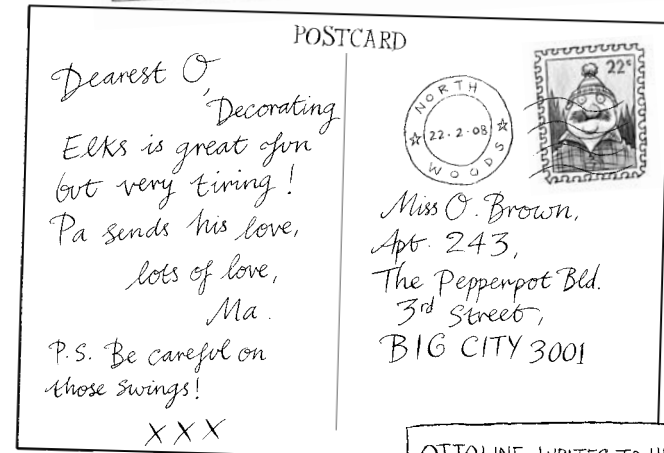 POSTCARD
Dearest O,
Decorating
Elks is great fun
but very tiring!
Pa sends his love,
lots of love,
Ma.
P.S. Be careful on
those swings!
XXX
NORTH
22.2.08
WOODS
22c
Miss O. Brown,
Apt. 243,
The Pepperpot Bld.
3rd Street,
BIG CITY 3001
OTTOLINE WRITES TO